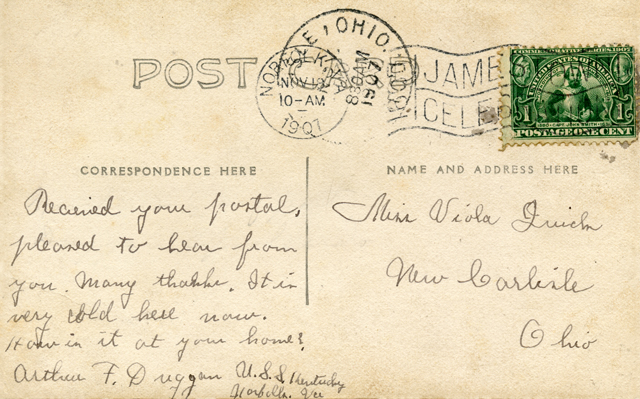 POST
OHIO.
NORFOLK, VA
NOV 18
10-AM
1907
830AM
1907
JAME
CELE
COMMEMORATIVE SERIES 1907
UNITED STATES OF AMERICA
1 1
POSTAGE ONE CENT
CORRESPONDENCE HERE
Received your postal,
pleased to hear from
you. Many thakks. It is
very cold here now.
How is it at your home?
Arthur F. Duggan U.S.S. Kentucky
Norfolk. Va
NAME AND ADDRESS HERE
Miss Viola
New Carlisle
Ohio